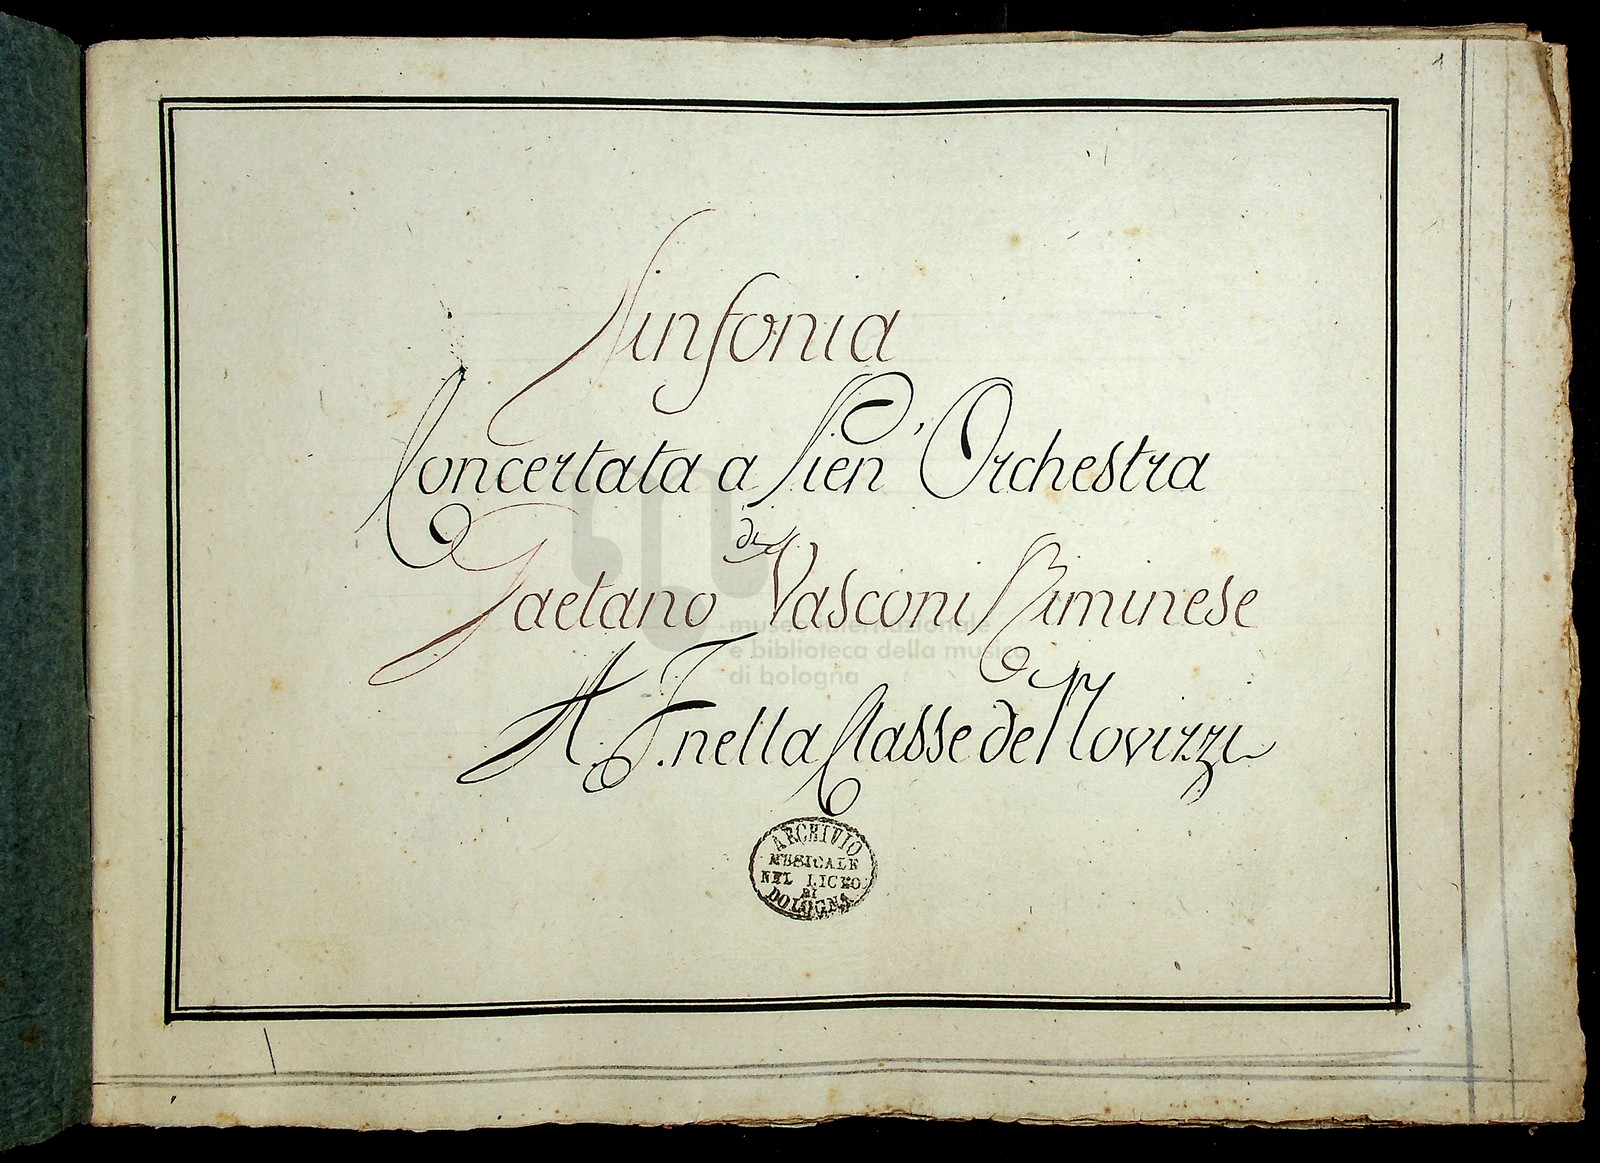 1
Sinfonia
Concertata a Pien' Orchestra
di
Gaetano Vasconi Riminese
A. F. nella Classe de Novizzi
museo internazionale
e biblioteca della musica
di bologna
ARCHIVIO
MUSICALE
NEL LICEO
DI
BOLOGNA